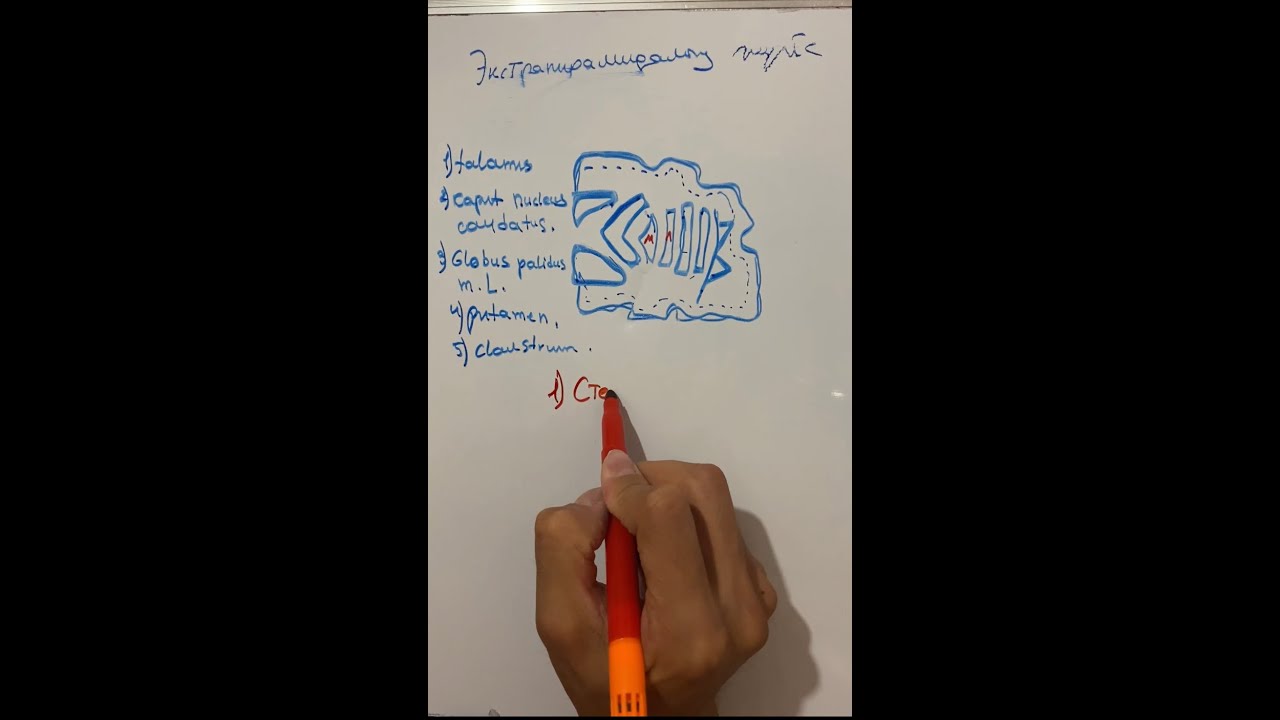 Экстрапирамидалыу
1) talamus
2) Caput nucleus
caudatus.
3) Globus palidus
m. L.
4) putamen.
5) Claustrum.
M Л
1) Сте